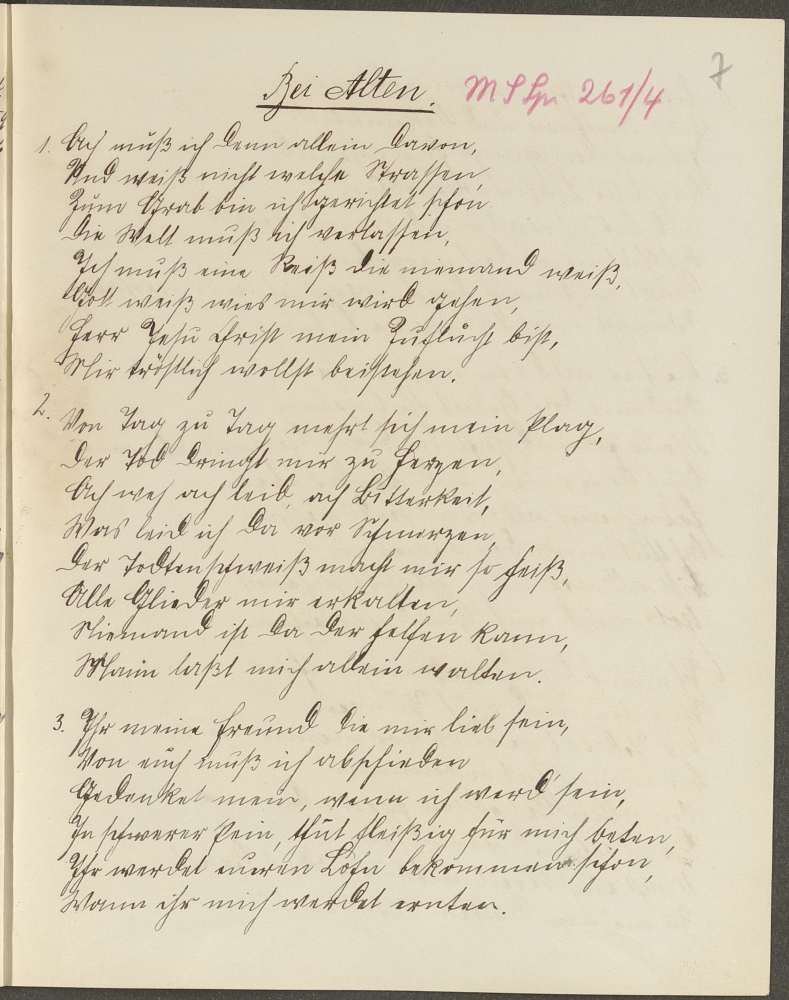 7
Bei Alten. MSSp 261/4
1. Ach muß ich denn allein davon,
Und weiß nicht welche Strassen,
Zum Grab bin ich gerichtet schon
Die Welt muß ich verlassen,
Ich muß eine Reiß die niemand weiß,
Gott weiß wies mir wird gehen,
Herr Jesu Christ mein Zuflucht bist,
Mir tröstlich wollst beistehen.
2. Von Tag zu Tag mehrt sich mein Plag,
Der Tod dringt mir zu Herzen,
Ach weh ach leid, ach Bitterkeit,
Was leid ich da vor Schmerzen,
Der Todtenschweiß macht mir so heiß,
Alle Glieder mir erkalten,
Niemand ist da der helfen kann,
laßt mich allein walten.
3. Ihr meine Freund die mir lieb sein,
Von euch muß ich abschieden
Gedenket mein, wenn ich werd sein,
In schwerer Pein, thut fleißig für mich beten,
Ihr werdet euren Lohn bekommen schon,
Wann ihr mich werdet ernten.